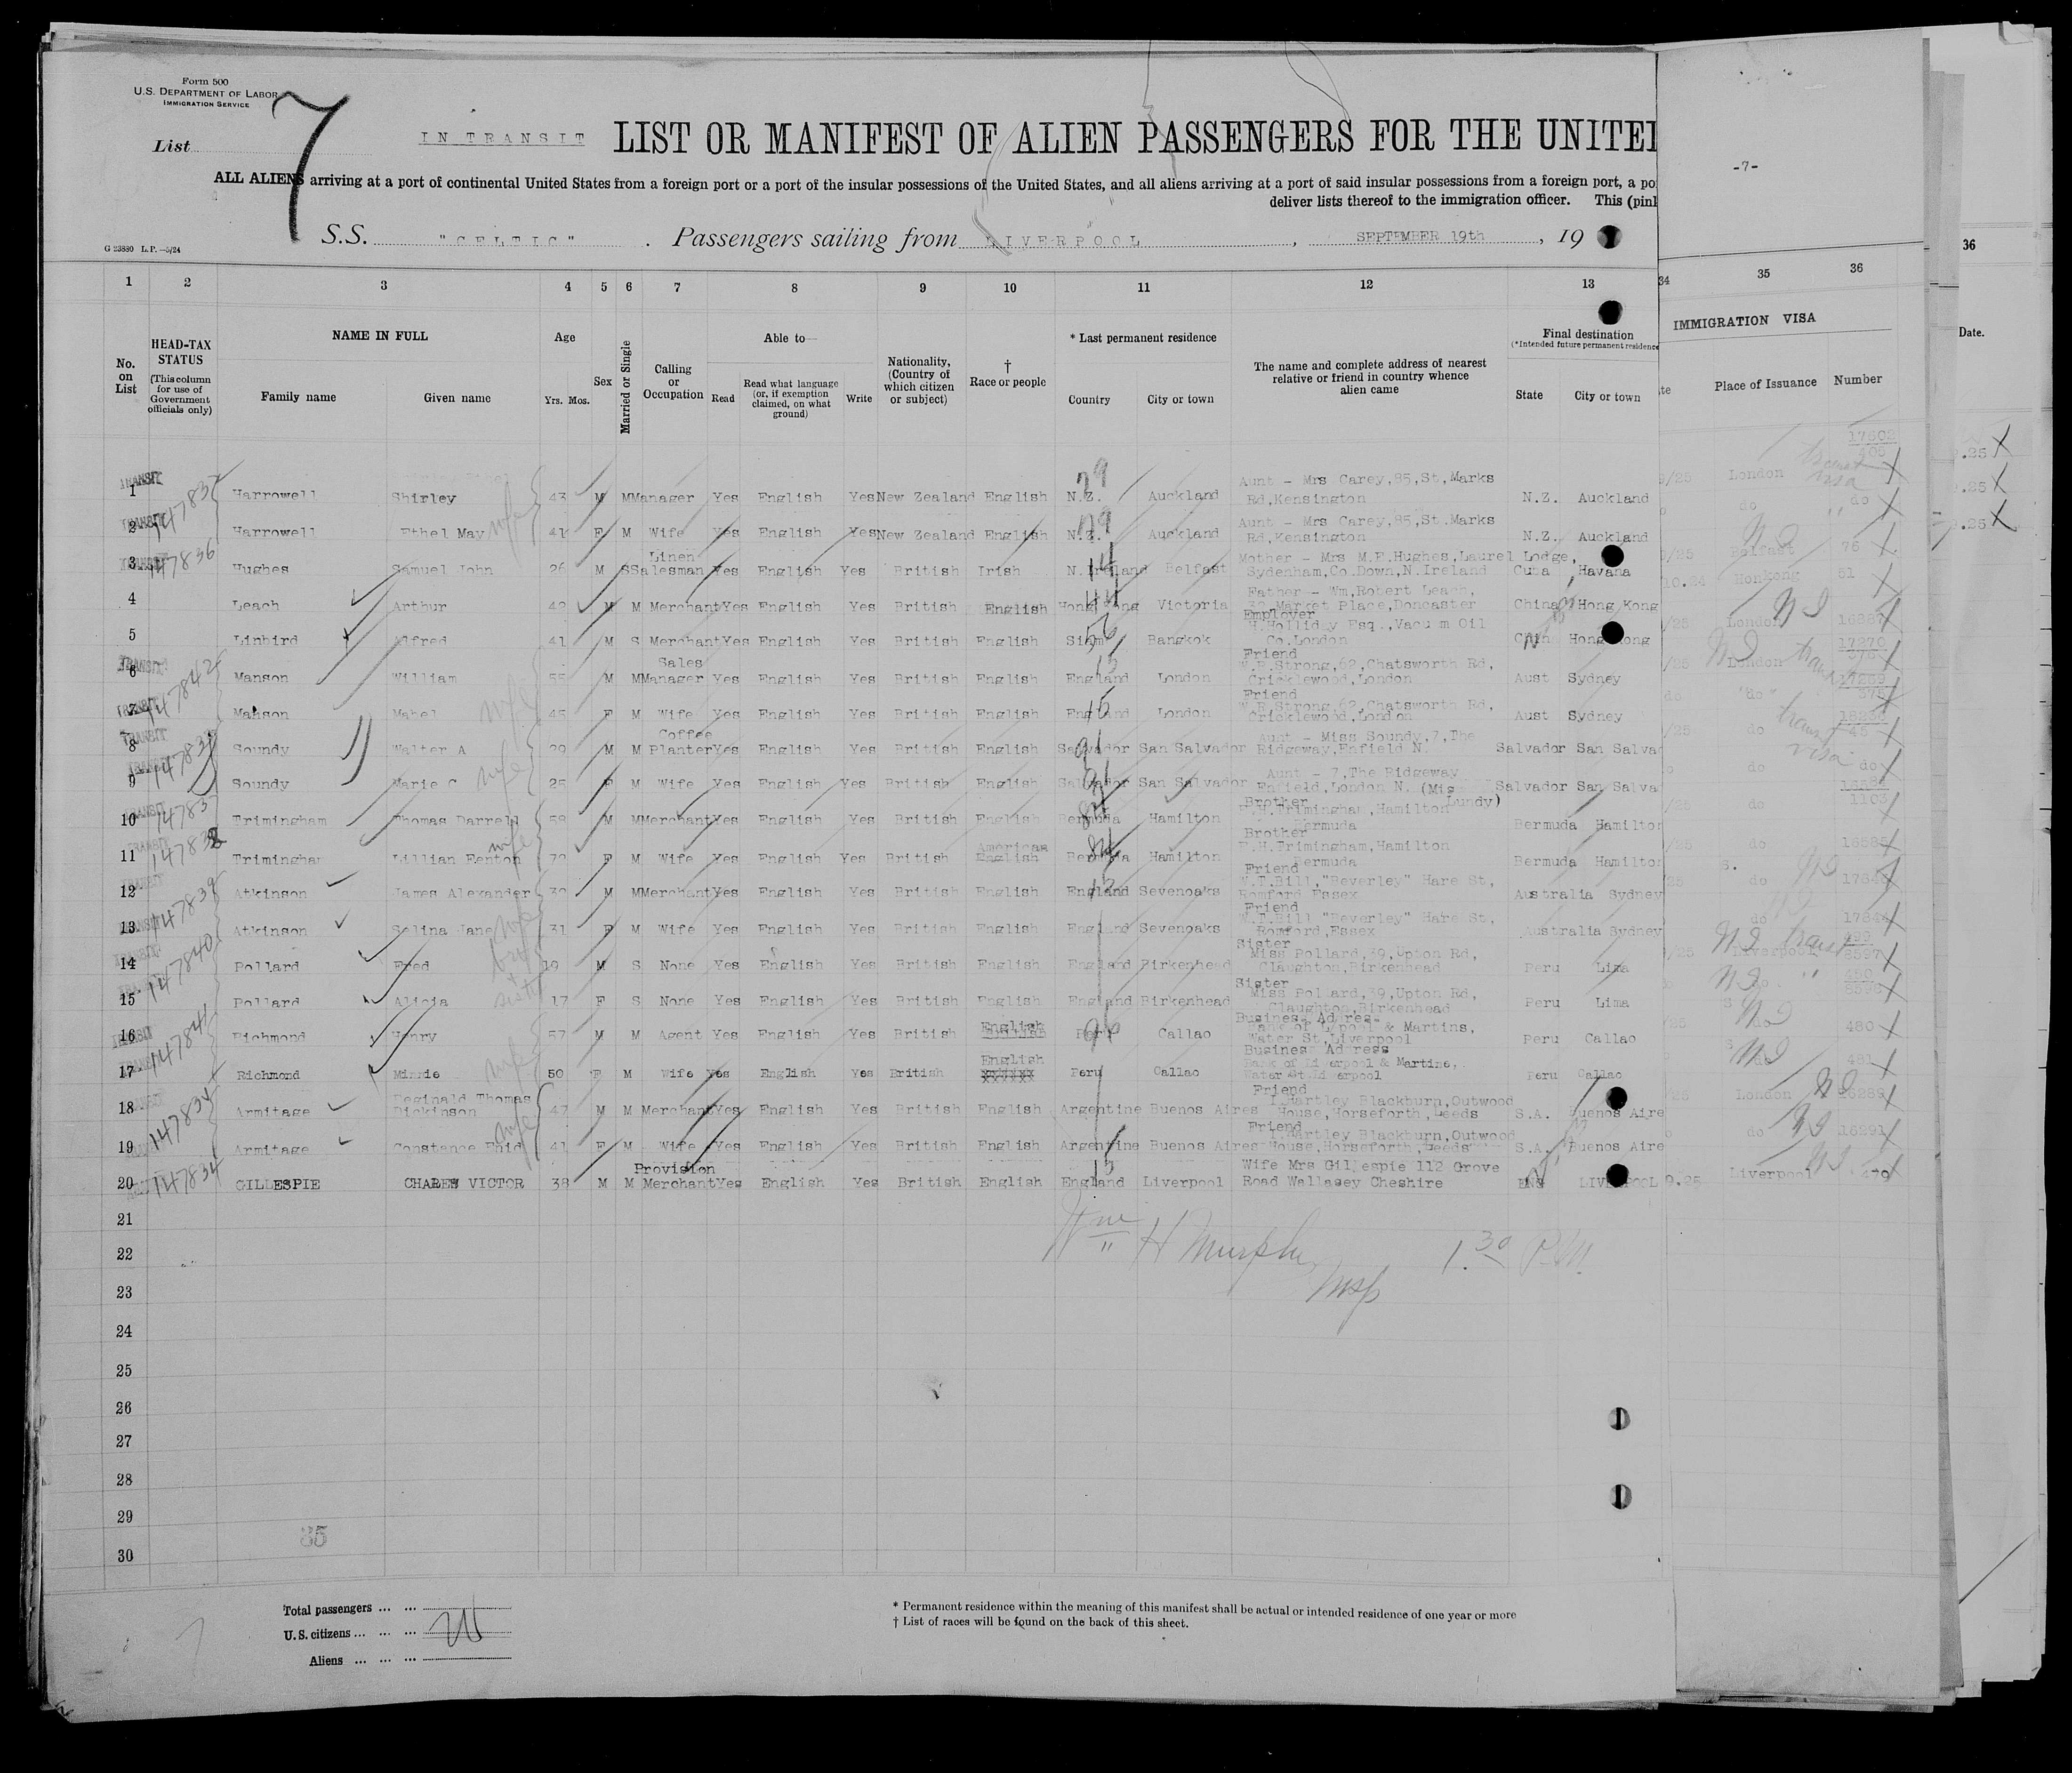 Form 500
U.S. DEPARTMENT OF LABOR
IMMIGRATION SERVICE
List
7
IN TRANSIT LIST OR MANIFEST OF ALIEN PASSENGERS FOR THE UNITE
ALL ALIENS arriving at a port of continental United States from a foreign port or a port of the insular possessions of the United States, and all aliens arriving at a port of said insular possessions from a foreign port, a po
deliver lists thereof to the immigration officer. This (pin
-7-
G 23880 L.P.—5/24
S.S. "CELTIC" . Passengers sailing from LIVERPOOL, SEPTEMBER 19th, 19
1 2 3 4 5 6 7 8 9 10 11 12 13 34 35 36 36
No. on List
HEAD-TAX STATUS
(This column for use of Government officials only)
NAME IN FULL
Family name Given name
Age
Yrs. Mos.
Sex
Married or Single
Calling or Occupation
Able to—
Read Read what language (or, if exemption claimed, on what ground) Write
Nationality, (Country of which citizen or subject)
† Race or people
* Last permanent residence
Country City or town
The name and complete address of nearest relative or friend in country whence alien came
Final destination
(*Intended future permanent residence
State City or town
IMMIGRATION VISA
Place of Issuance Number
Date.
1 TRANSIT Harrowell Shirley 43 M M Manager Yes English Yes New Zealand English N.Z. Auckland Aunt - Mrs Carey,85,St,Marks Rd,Kensington N.Z. Auckland London
2 Harrowell Ethel May wife 41 F M Wife Yes English Yes New Zealand English N.Z. Auckland Aunt - Mrs Carey,85,St.Marks Rd,Kensington N.Z. Auckland do do
3 147836 Hughes Samuel John 26 M S Linen Salesman Yes English Yes British Irish N.Ireland Belfast Mother - Mrs M.E.Hughes,Laurel Lodge, Sydenham,Co.Down,N.Ireland Cuba Havana Belfast 76
4 Leach Arthur 42 M M Merchant Yes English Yes British English Hong Kong Victoria Father - Wm,Robert Leach, Market Place,Doncaster China Hong Kong Honkong 51
5 Linbird Alfred 41 M S Merchant Yes English Yes British English Siam Bangkok Employer H.Holliday Esq.,Vacuum Oil Co.London Hong Kong London
6 147842 Manson William 55 M M Sales Manager Yes English Yes British English England London Friend W.R.Strong,62,Chatsworth Rd, Cricklewood,London Aust Sydney London
7 Manson Mabel wife 45 F M Wife Yes English Yes British English England London Friend W.R.Strong,62,Chatsworth Rd, Cricklewood,London Aust Sydney do
8 TRANSIT Soundy Walter A 29 M M Coffee Planter Yes English Yes British English Salvador San Salvador Aunt - Miss Soundy,7,The Ridgeway,Enfield N. Salvador San Salva do
9 Soundy Marie C wife 25 F M Wife Yes English Yes British English Salvador San Salvador Aunt - 7,The Ridgeway Enfield,London N. Salvador San Salva do do
10 147837 Trimingham Thomas Darrell 58 M M Merchant Yes English Yes British English Bermuda Hamilton Brother Trimingham,Hamilton Bermuda Bermuda Hamilton do 1103
11 Trimingham Lillian Fenton wife F M Wife Yes English Yes British American Bermuda Hamilton Brother Trimingham,Hamilton Bermuda Bermuda Hamilton do
12 147839 Atkinson James Alexander M M Merchant Yes English Yes British English England Sevenoaks Friend W.T.Bill,"Beverley" Hare St, Romford Essex Australia Sydney do
13 Atkinson Selina Jane wife 31 F M Wife Yes English Yes British English England Sevenoaks Friend W.T.Bill "Beverley" Hare St, Romford,Essex Australia Sydney do
14 147840 Pollard Fred 19 M S None Yes English Yes British English England Birkenhead Sister Miss Pollard,39,Upton Rd, Claughton,Birkenhead Peru Lima Liverpool
15 Pollard Alicia 17 F S None Yes English Yes British English England Birkenhead Sister Miss Pollard,39,Upton Rd, Claughton,Birkenhead Peru Lima
16 147841 Richmond Henry 57 M M Agent Yes English Yes British English Peru Callao Business Address Bank of L'pool & Martins, Water St,Liverpool Peru Callao 480
17 Richmond Minnie wife 50 F M Wife Yes English Yes British English Peru Callao Business Address Bank of Liverpool & Martins, Water St.Liverpool Peru Callao 481
18 Armitage Reginald Thomas Dickinson 47 M M Merchant Yes English Yes British English Argentine Buenos Aires Friend T.Hartley Blackburn,Outwood House,Horseforth,Leeds S.A. Buenos Aire London 16289
19 Armitage Constance Enid wife 41 F M Wife Yes English Yes British English Argentine Buenos Aires Friend T.Hartley Blackburn,Outwood House,Horseforth,Leeds S.A. Buenos Aire do 16291
20 147834 GILLESPIE CHARLES VICTOR 38 M M Provision Merchant Yes English Yes British English England Liverpool Wife Mrs Gillespie 112 Grove Road Wallasey Cheshire ENG LIVERPOOL Liverpool 479
21
22
Wm H Murphy 1.30 P.M.
Insp
23
24
25
26
27
28
29
30
35
Total passengers ... ...
U.S. citizens ... ... ...
Aliens ... ... ...
* Permanent residence within the meaning of this manifest shall be actual or intended residence of one year or more
† List of races will be found on the back of this sheet.